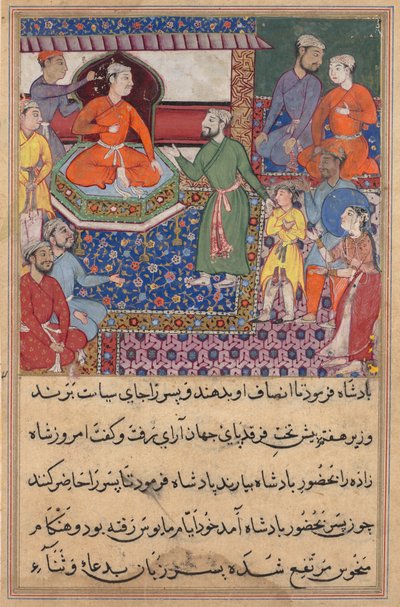 پادشاه فرمود تا انصاف او بدهند و پسر را جای سیاست برند
وزیر هفتم پیش تخت فرقدپای جهان آرای رفت و گفت امروز شاه
زاده را بحضور پادشاه بیارند پادشاه فرمود تا پسر را حاضر کنند
چون پسر بحضور پادشاه آمد خود ایام مایوس رفته بود و هنکام
منحوس مرتفع شده پسر زبان بدعا و ثنای